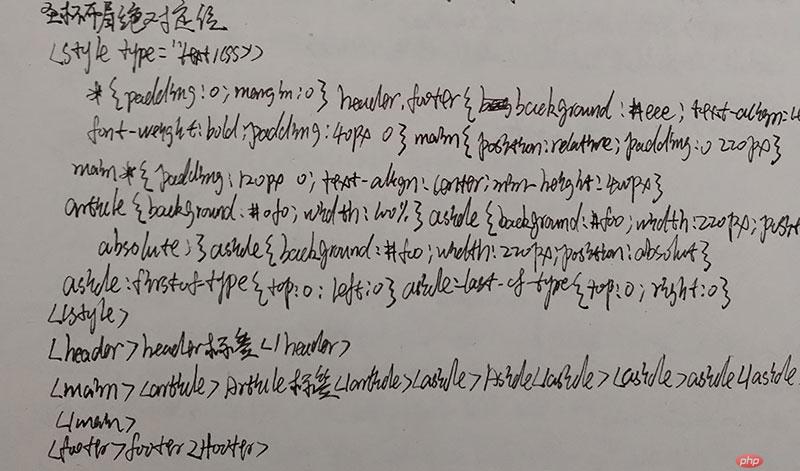 圣杯布局绝对定位
<style type="text/css">
*{padding:0;margin:0} header,footer{background:#eee;text-align:
font-weight:bold;padding:40px 0} main{position:relative;padding:0 220px}
main *{padding:120px 0;text-align:center;min-height:400px}
article{background:#0f0;width:100%} aside{background:#f00;width:220px;
absolute;} aside{background:#f00;width:220px;position:absolut}
aside:first-of-type{top:0;left:0} aside:last-of-type{top:0;right:0}
</style>
<header>header标签</header>
<main><article>Article标签</article><aside>Aside</aside><aside>aside</aside
</main>
<footer>footer</footer>
php